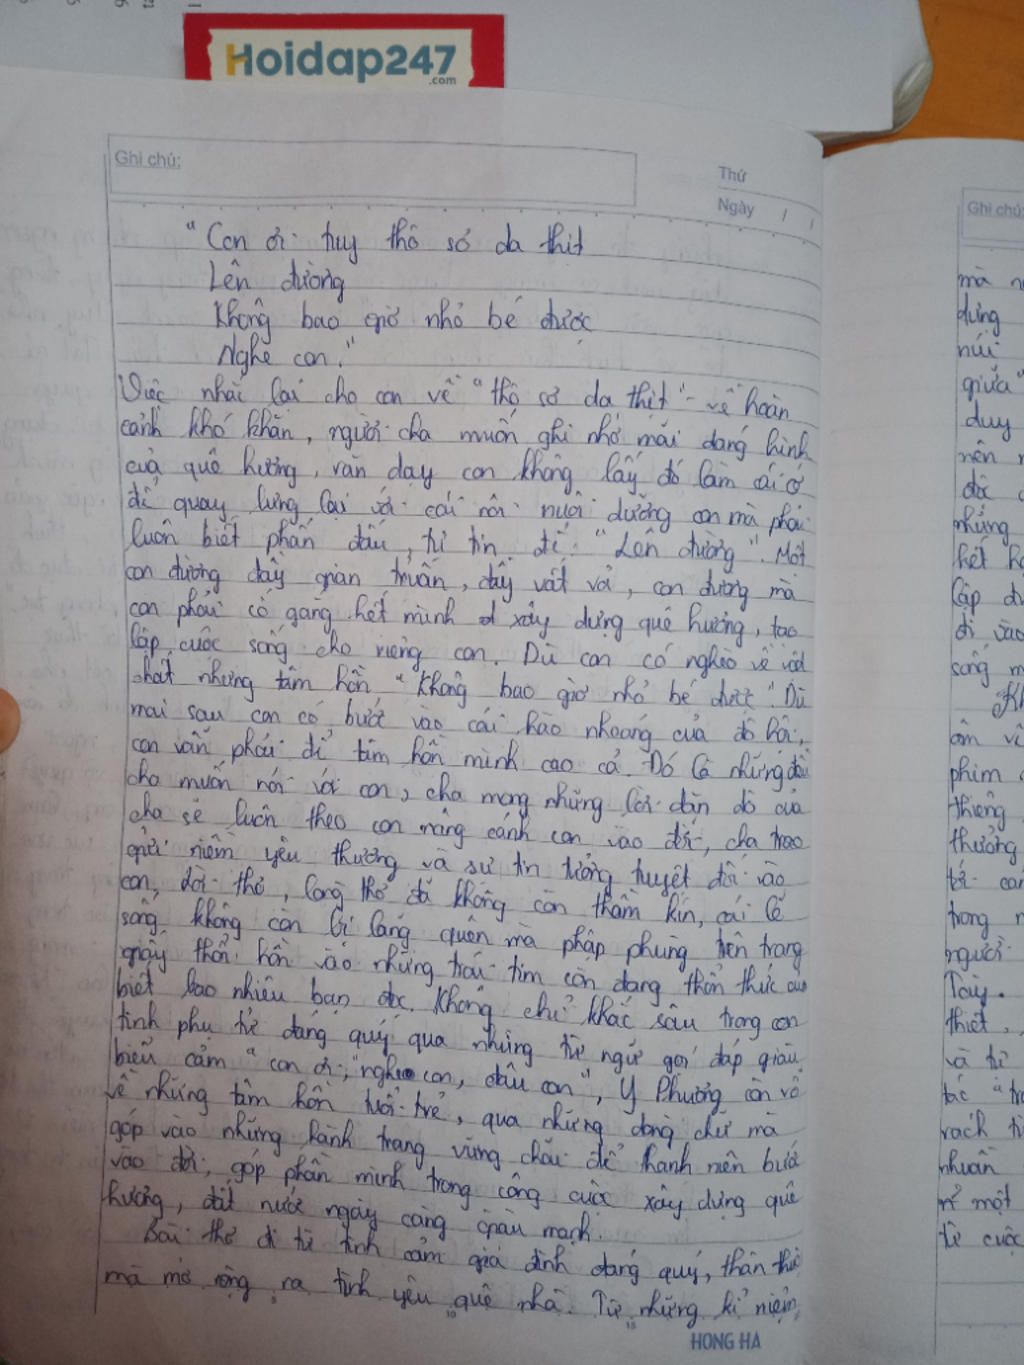 Hoidap247
.com
Ghi chú:
Thứ
Ngày / /
"Con ơi tuy thô sơ da thịt
Lên đường
Không bao giờ nhỏ bé được
Nghe con."
Việc nhắc lại cho con về "thô sơ da thịt" - về hoàn
cảnh khó khăn, người cha muốn ghi nhớ mãi dáng hình
của quê hương, răn dạy con không lấy đó làm cái cớ
để quay lưng lại với cái nôi nuôi dưỡng con mà phải
luôn biết phấn đấu, tự tin để "Lên đường". Một
con đường đầy gian truân, đầy vất vả, con đường mà
con phải cố gắng hết mình xây dựng quê hương, tạo
lập cuộc sống cho riêng con. Dù con có nghèo về vật
chất nhưng tâm hồn "Không bao giờ nhỏ bé được". Dù
mai sau con có bước vào cái hào nhoáng của đô hội,
con vẫn phải để tâm hồn mình cao cả. Đó là những điều
cha muốn nói với con, cha mong những lời dặn dò của
cha sẽ luôn theo con nâng cánh con vào đời, cha trao
gửi niềm yêu thương và sự tin tưởng tuyệt đối vào
con, lời thơ, lòng thơ đã không còn thầm kín, cái lẽ
sống không còn bị lãng quên mà phập phùng trên trang
giấy thổi hồn vào những trái tim còn đang thổn thức của
biết bao nhiêu bạn đọc. Không chỉ khắc sâu trong con
tình phụ tử đáng quý qua những từ ngữ gọi đáp giàu
biểu cảm "con ơi", "nghe con, đâu con", Y Phương còn vỗ
về những tâm hồn tuổi trẻ, qua những dòng chữ mà
góp vào những hành trang vững chãi để thanh niên bước
vào đời, góp phần mình trong công cuộc xây dựng quê
hương, đất nước ngày càng giàu mạnh.
Bài thơ đi từ tình cảm gia đình đáng quý, thân thiết
mà mở rộng ra tình yêu quê nhà. Từ những kỉ niệm
HONG HA
Ghi chú:
dựng
núi
giữa"
duy
nên
những
hết
lập
đi vào
sống
phim
thiêng
thưởng
trong
người
Tày.
thiết,
và từ
vách
nhuần
một
từ cuộc